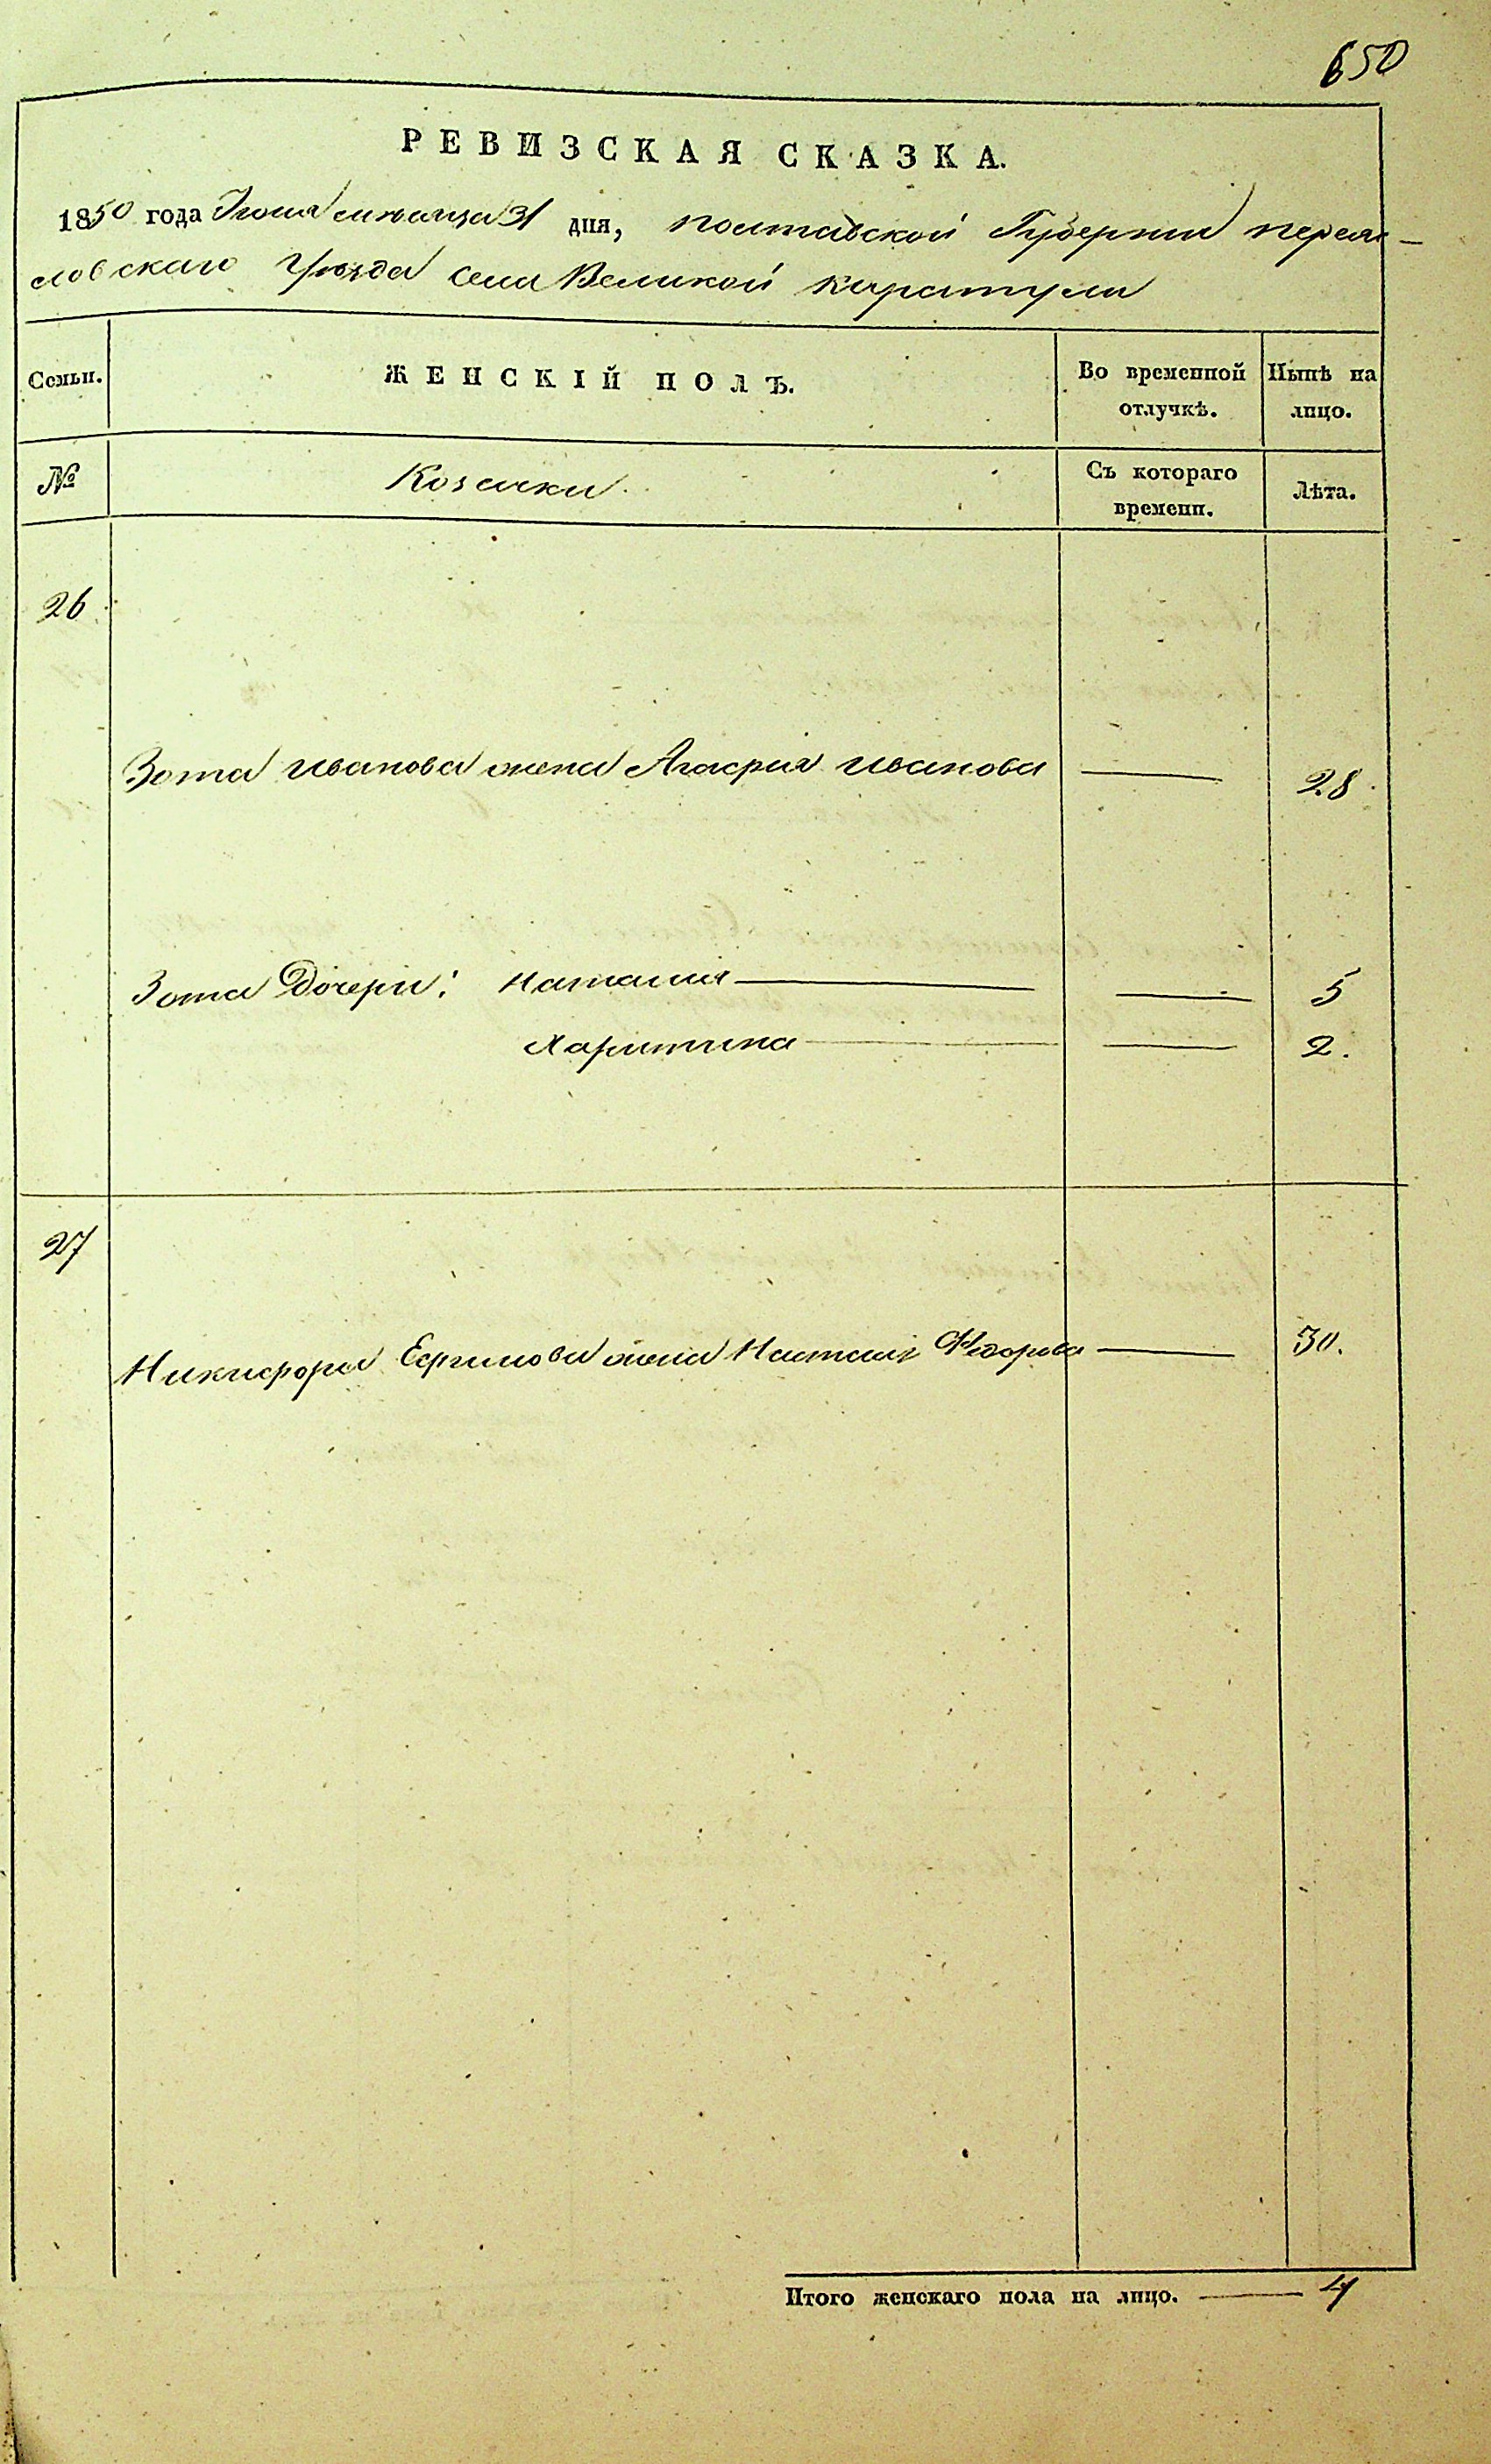 650
РЕВИЗСКАЯ СКАЗКА.
1850 года Июля месяца 31 дня, полтавской Губернии переяс-
ловскаго Уѣзда села Великой каратули
Семьи. ЖЕНСКІЙ ПОЛЪ. Во временной отлучкѣ. Нынѣ на лицо.
№ Козачки. Съ котораго времени. Лѣта.
26
Зота Иванова жена Агафия Иванова — 28
Зота Дочери: Наталия — — 5
Харитина — — 2.
27
Никифора Ефимова жена Наталия Федорова — 30.
Итого женскаго пола на лицо. — 4